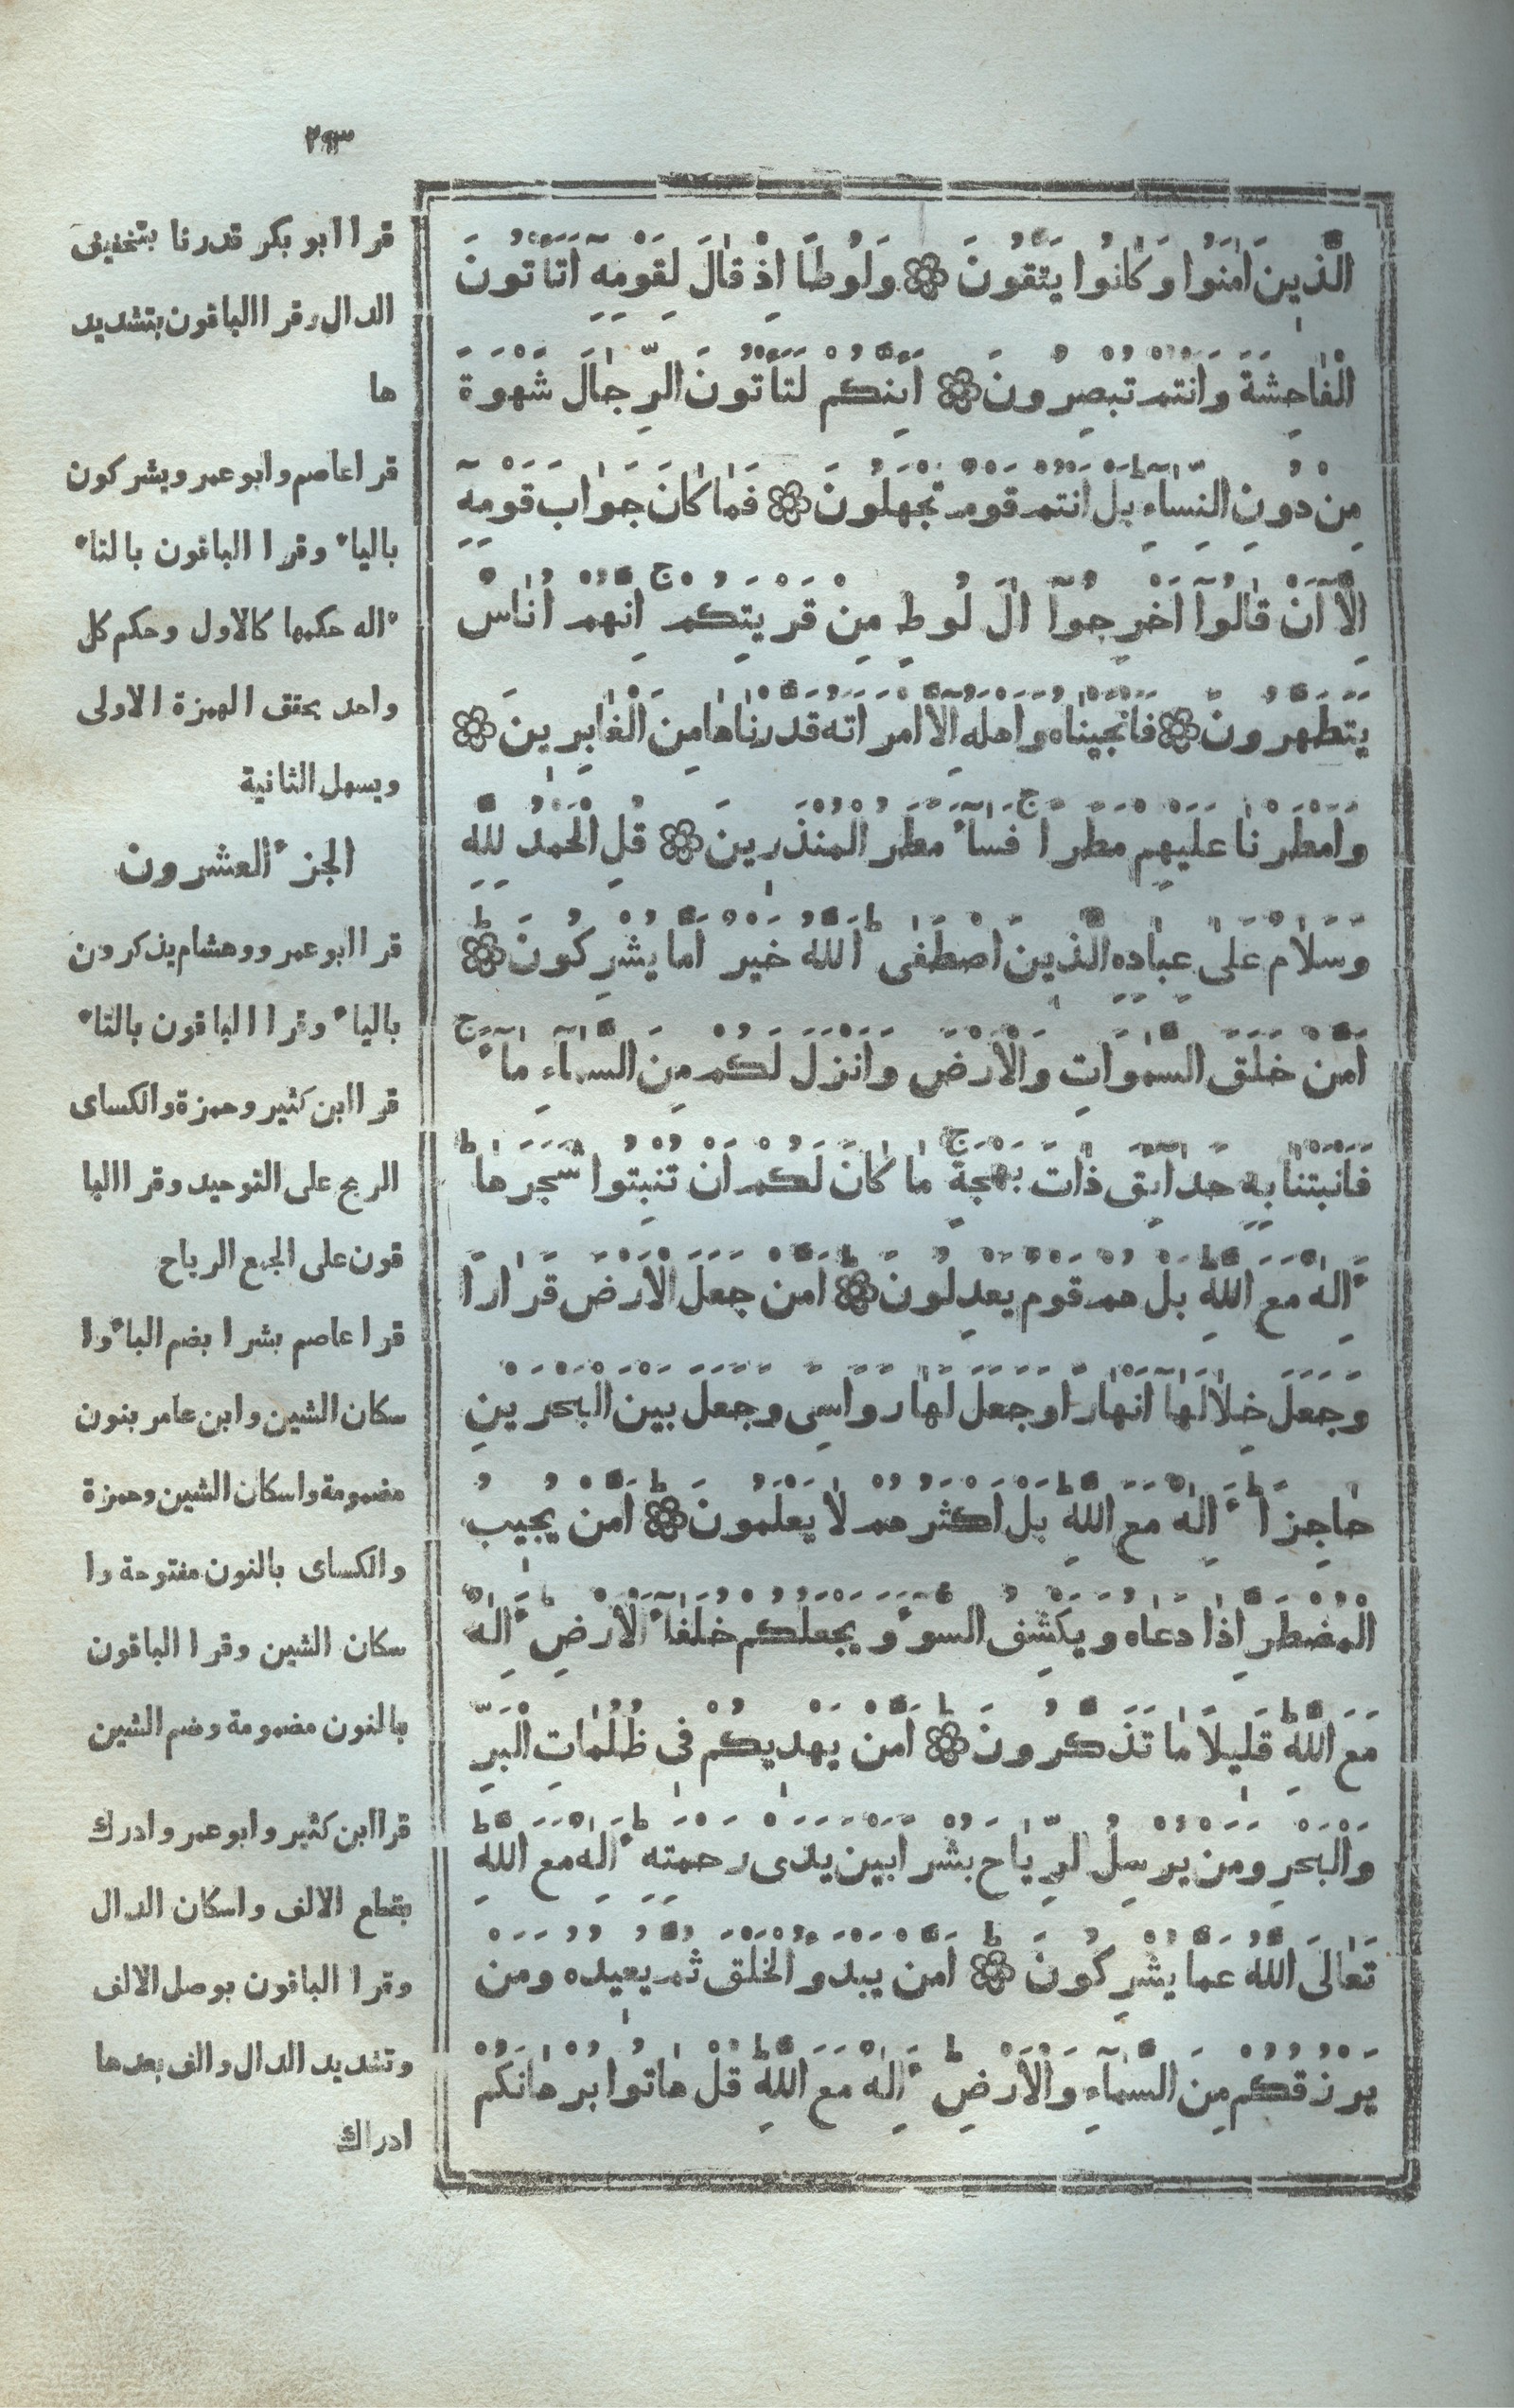 ٢٩٣
الَّذِينَ اٰمَنُوا وَكَانُوا يَتَّقُونَ ۝ وَلُوطًا اِذْ قَالَ لِقَوْمِهِٓ اَتَاْتُونَ
الْفَاحِشَةَ وَاَنْتُمْ تُبْصِرُونَ ۝ اَئِنَّكُمْ لَتَاْتُونَ الرِّجَالَ شَهْوَةً
مِنْ دُونِ النِّسَآءِ ط بَلْ اَنْتُمْ قَوْمٌ تَجْهَلُونَ ۝ فَمَا كَانَ جَوَابَ قَوْمِهِٓ
اِلَّآ اَنْ قَالُوٓا اَخْرِجُوٓا اٰلَ لُوطٍ مِنْ قَرْيَتِكُمْ ج اِنَّهُمْ اُنَاسٌ
يَتَطَهَّرُونَ ۝ فَاَنْجَيْنَاهُ وَاَهْلَهُٓ اِلَّا امْرَاَتَهُ قَدَّرْنَاهَا مِنَ الْغَابِرِينَ ۝
وَاَمْطَرْنَا عَلَيْهِمْ مَطَرًا ج فَسَآءَ مَطَرُ الْمُنْذَرِينَ ۝ قُلِ الْحَمْدُ لِلّٰهِ
وَسَلَامٌ عَلٰى عِبَادِهِ الَّذِينَ اصْطَفٰى ط اٰللّٰهُ خَيْرٌ اَمَّا يُشْرِكُونَ ط ۝
اَمَّنْ خَلَقَ السَّمٰوَاتِ وَالْاَرْضَ وَاَنْزَلَ لَكُمْ مِنَ السَّمَآءِ مَآءً ج
فَاَنْبَتْنَا بِهِ حَدَآئِقَ ذَاتَ بَهْجَةٍ ج مَا كَانَ لَكُمْ اَنْ تُنْبِتُوا شَجَرَهَا ط
ءَاِلٰهٌ مَعَ اللّٰهِ ط بَلْ هُمْ قَوْمٌ يَعْدِلُونَ ط ۝ اَمَّنْ جَعَلَ الْاَرْضَ قَرَارًا
وَجَعَلَ خِلَالَهَآ اَنْهَارًا وَجَعَلَ لَهَا رَوَاسِىَ وَجَعَلَ بَيْنَ الْبَحْرَيْنِ
حَاجِزًا ط ءَاِلٰهٌ مَعَ اللّٰهِ ط بَلْ اَكْثَرُهُمْ لَا يَعْلَمُونَ ط ۝ اَمَّنْ يُجِيبُ
الْمُضْطَرَّ اِذَا دَعَاهُ وَيَكْشِفُ السُّوءَ وَيَجْعَلُكُمْ خُلَفَآءَ الْاَرْضِ ط ءَاِلٰهٌ
مَعَ اللّٰهِ ط قَلِيلًا مَا تَذَكَّرُونَ ط ۝ اَمَّنْ يَهْدِيكُمْ فِى ظُلُمَاتِ الْبَرِّ
وَالْبَحْرِ وَمَنْ يُرْسِلُ الرِّيَاحَ بُشْرًا بَيْنَ يَدَىْ رَحْمَتِهِ ط ءَاِلٰهٌ مَعَ اللّٰهِ ط
تَعَالَى اللّٰهُ عَمَّا يُشْرِكُونَ ط ۝ اَمَّنْ يَبْدَؤُ الْخَلْقَ ثُمَّ يُعِيدُهُ وَمَنْ
يَرْزُقُكُمْ مِنَ السَّمَآءِ وَالْاَرْضِ ط ءَاِلٰهٌ مَعَ اللّٰهِ ط قُلْ هَاتُوا بُرْهَانَكُمْ
قرا ابو بكر قدرنا بتخفيف
الدال وقرا الباقون بتشديد
ها
قرا عاصم وابو عمرو يشركون
بالياء وقرا الباقون بالتاء
ءاله حكمها كالاول وحكم كل
واحد يحقق الهمزة الاولى
ويسهل الثانية
الجزء العشرون
قرا ابو عمرو وهشام يذكرون
بالياء وقرا الباقون بالتاء
قرا ابن كثير وحمزة والكساى
الريح على التوحيد وقرا البا
قون على الجمع الرياح
قرا عاصم بشرا بضم الباء وا
سكان الشين وابن عامر بنون
مضمومة واسكان الشين وحمزة
والكساى بالنون مفتوحة وا
سكان الشين وقرا الباقون
بالنون مضمومة وضم الشين
قرا ابن كثير وابو عمرو ادرك
بقطع الالف واسكان الدال
وقرا الباقون بوصل الالف
وتشديد الدال والف بعدها
ادراك